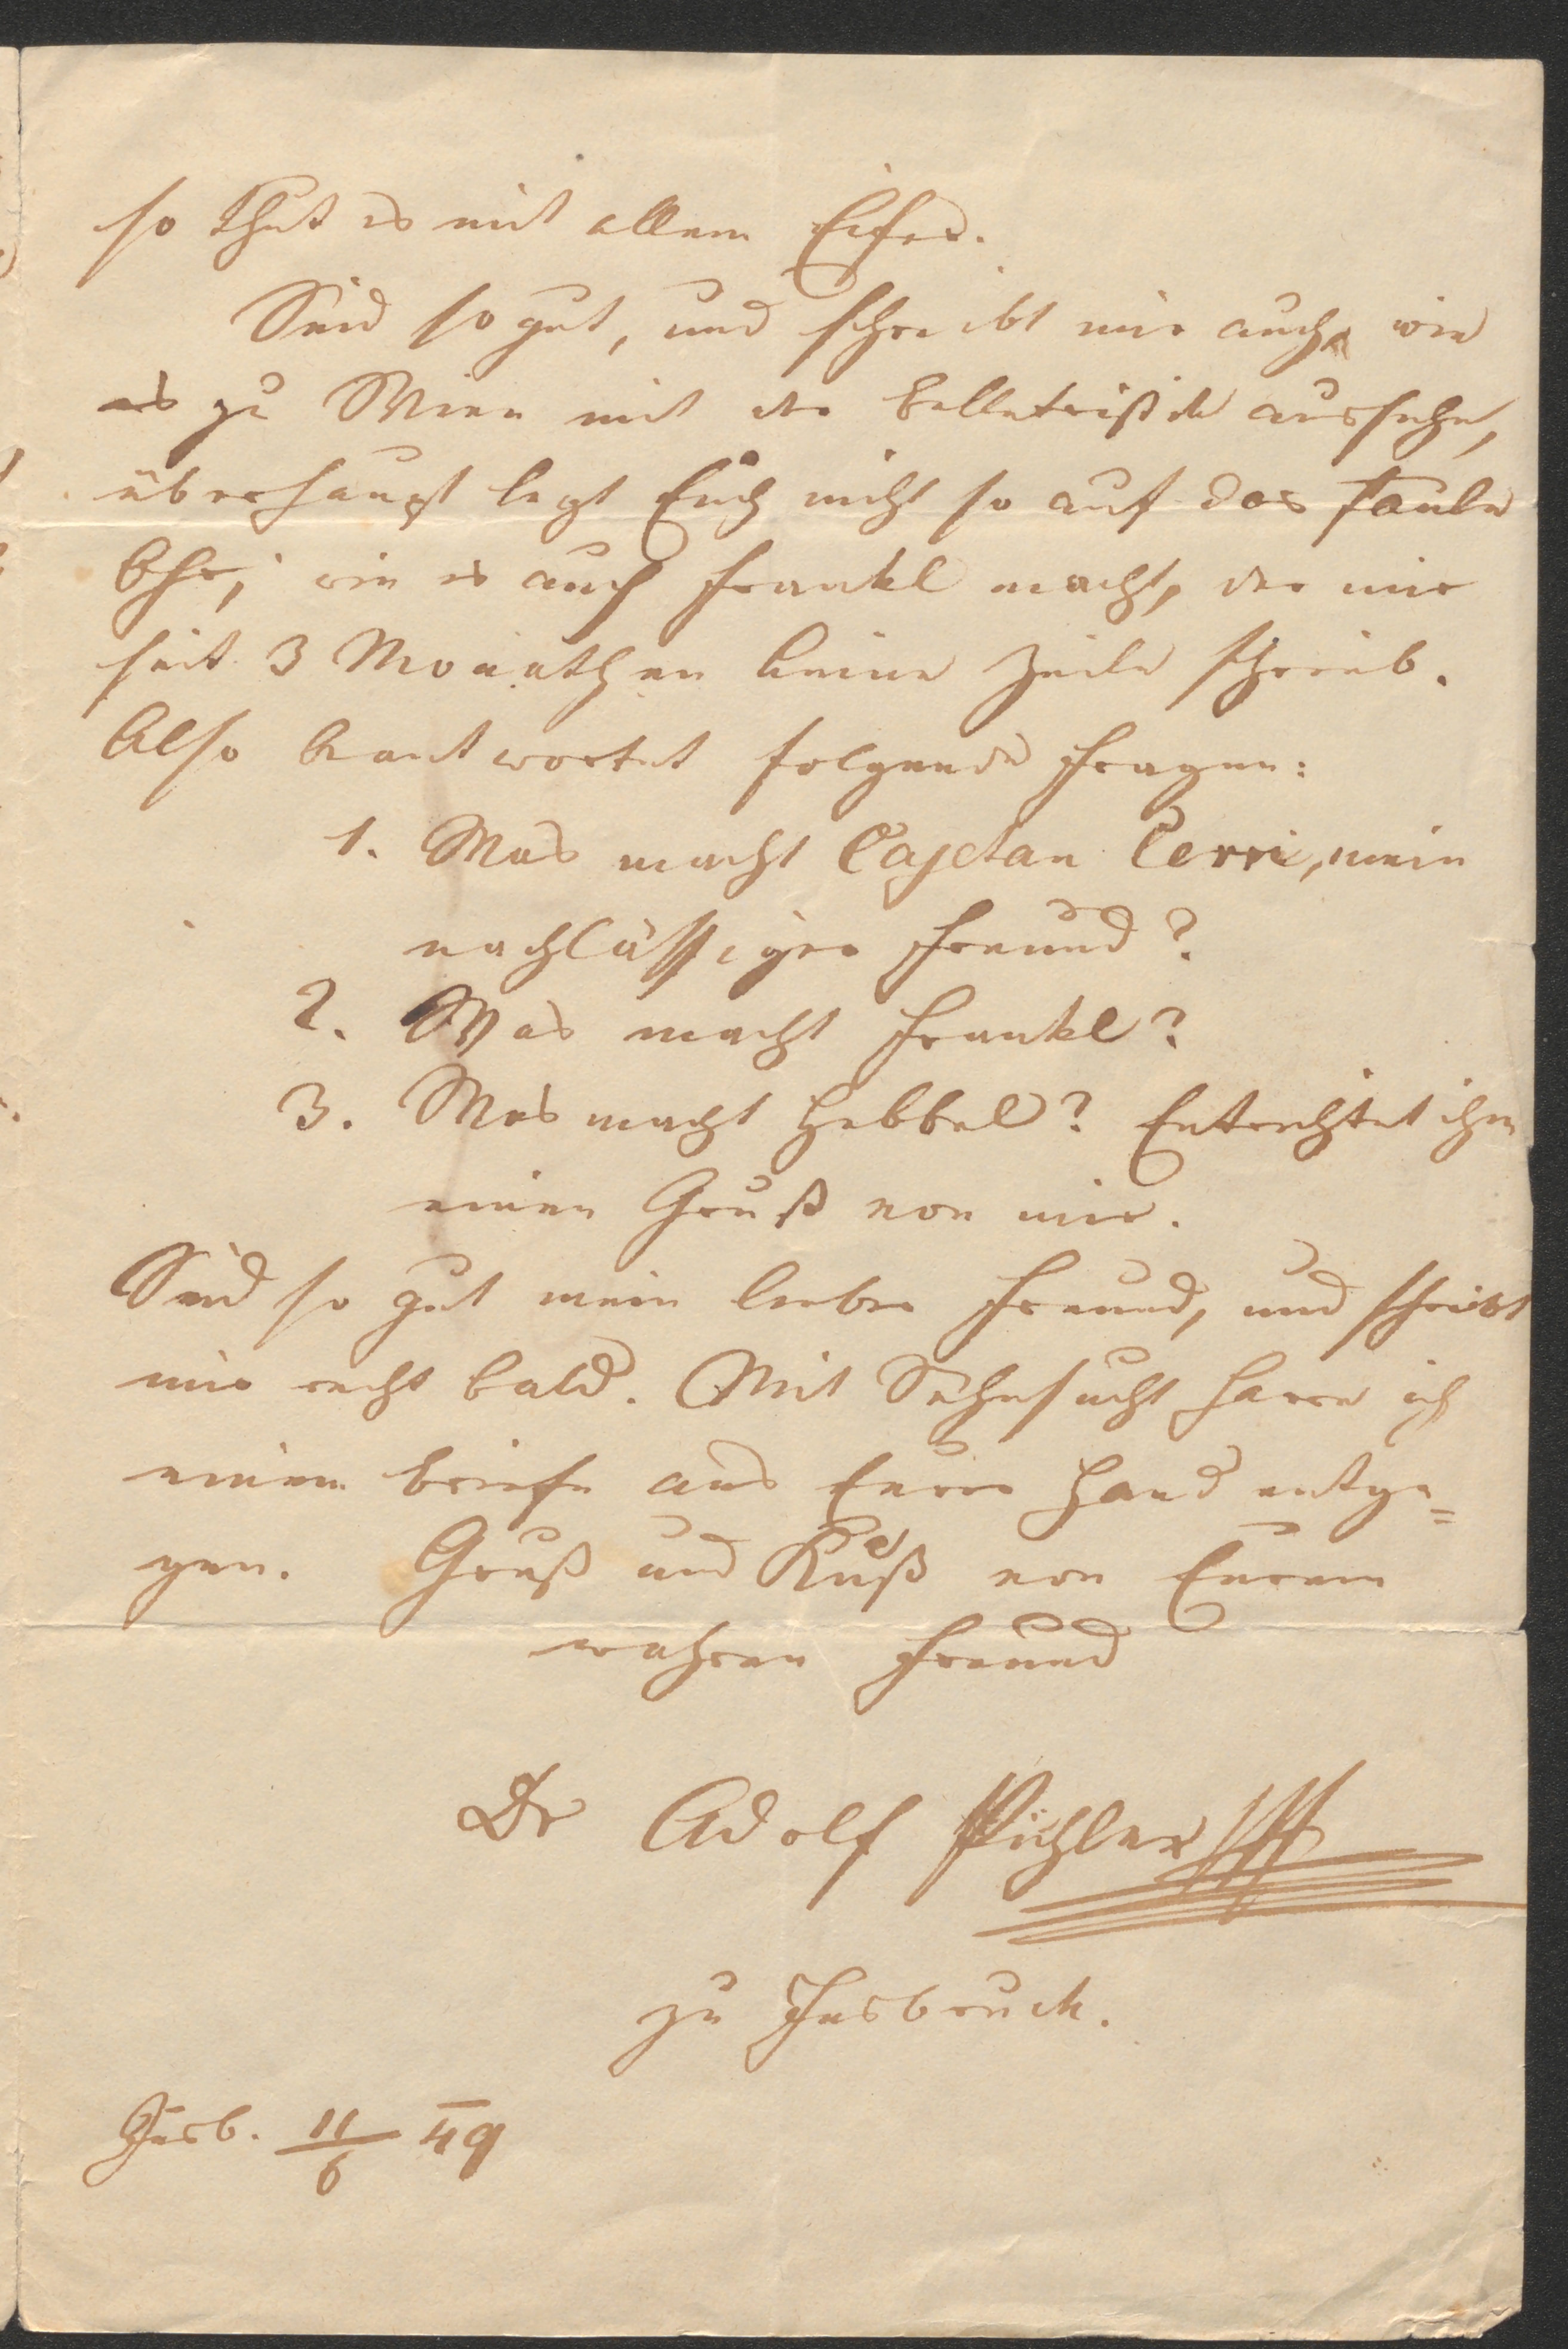 so thut es mit allem Eifer.
Seid so gut, und schreibt mir auch, wie
es zu Wien mit der Belletristik aussehe,
überhaupt legt Euch nicht so auf das faule
Ohr, wie es auch Frankl macht, der mir
seit 3 Monathen keine Zeile schrieb.
Also beantwortet folgende Fragen:
1. Was macht Cajetan Cerri, mein
nachlässiger Freund?
2. Was macht Frankl?
3. Was macht Hebbel? Entrichtet ihm
einen Gruß von mir.
Seid so gut mein lieber Freund, und schreibt
mir recht bald. Mit Sehnsucht harre ich
einem Briefe aus Eurer Hand entge=
gen. Gruß und Kuß von Eurem
wahren Freund
Dr Adolf Pichler
zu Insbruck.
Insb. 11/6 49